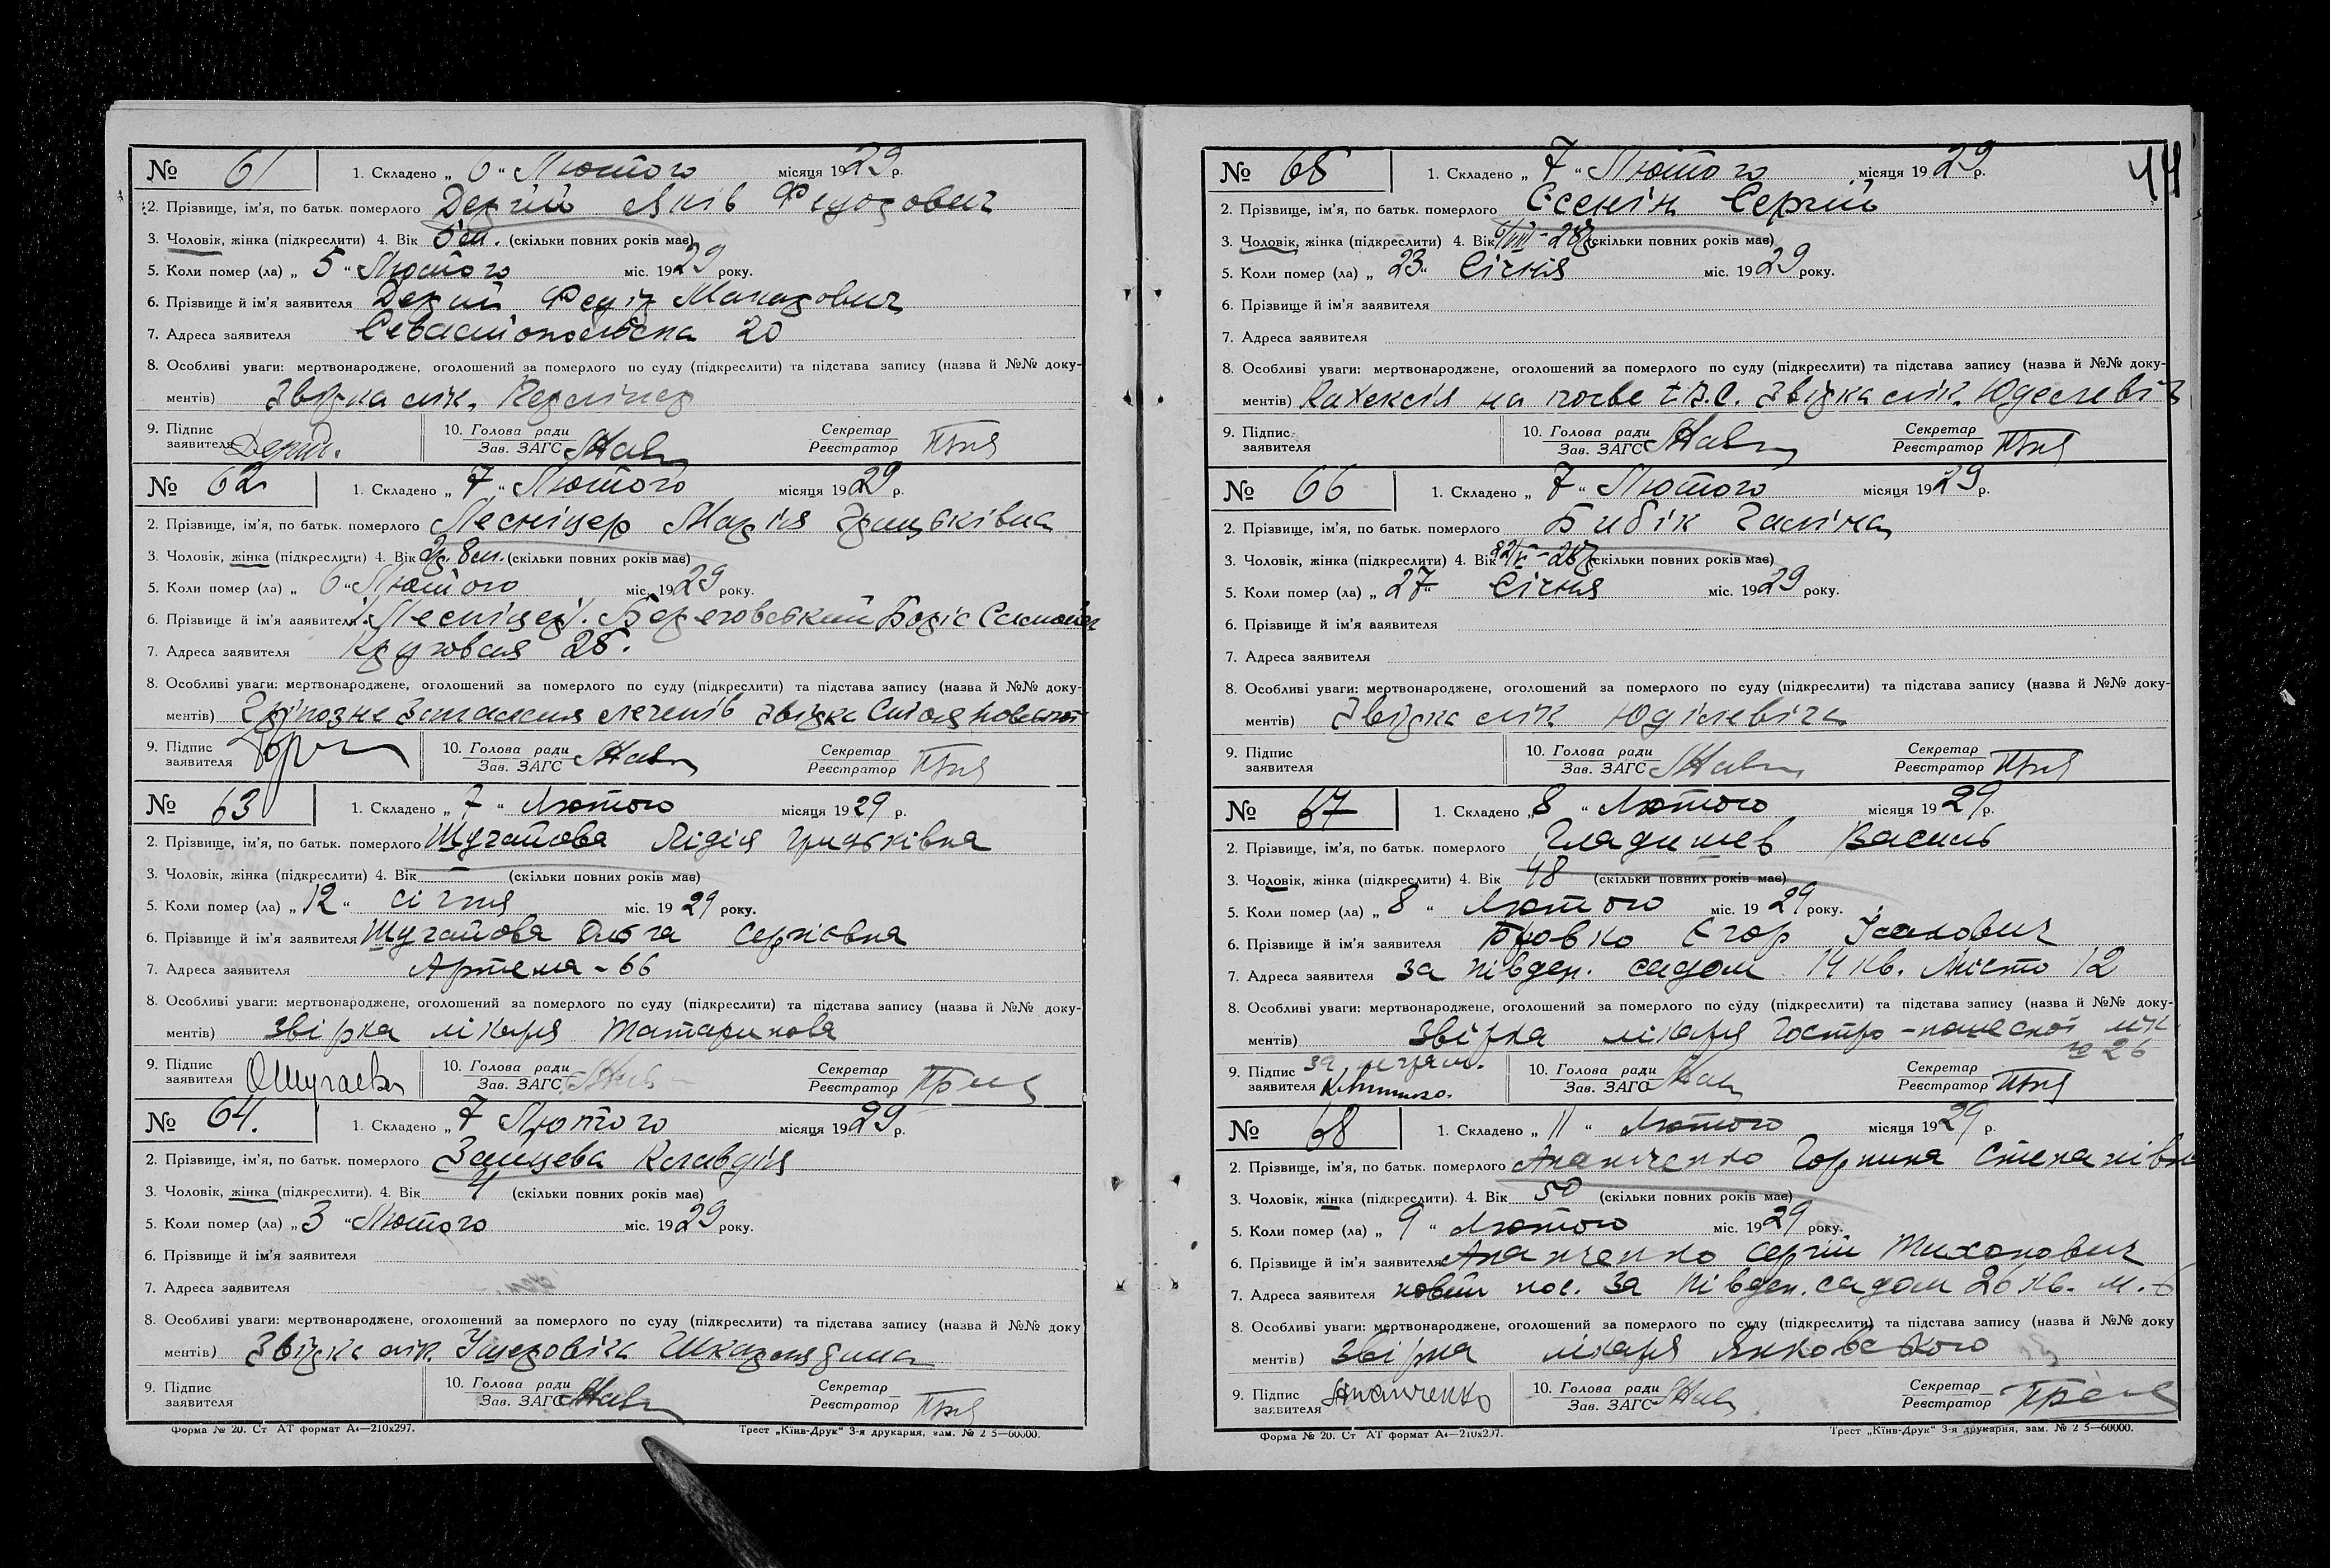 № 61 1. Складено „ 6 “ Лютого місяця 1929 р.
2. Прізвище, ім’я, по батьк. померлого Яків
3. Чоловік, жінка (підкреслити) 4. Вік (скільки повних років має)
5. Коли помер (ла) „ 5 “ Лютого міс. 1929 року.
6. Прізвище й ім’я заявителя Макарович
7. Адреса заявителя Севастопольська 20
8. Особливі уваги: мертвонароджене, оголошений за померлого по суду (підкреслити) та підстава запису (назва й №№ доку-
ментів) Звірка лік.
9. Підпис заявителя 10. Голова ради Зав. ЗАГС Секретар Реєстратор
№ 62 1. Складено „ 7 “ Лютого місяця 1929 р.
2. Прізвище, ім’я, по батьк. померлого Леснічер Марія Грицьківна
3. Чоловік, жінка (підкреслити) 4. Вік 2р. 8м. (скільки повних років має)
5. Коли помер (ла) „ 6 “ Лютого міс. 1929 року.
6. Прізвище й ім’я заявителя Береговський Борис
7. Адреса заявителя Кругова
8. Особливі уваги: мертвонароджене, оголошений за померлого по суду (підкреслити) та підстава запису (назва й №№ доку-
ментів) Гріпозне запалення легенів звірка
9. Підпис заявителя 10. Голова ради Зав. ЗАГС Секретар Реєстратор
№ 63 1. Складено „ 7 “ Лютого місяця 1929 р.
2. Прізвище, ім’я, по батьк. померлого Лідія Грицьківна
3. Чоловік, жінка (підкреслити) 4. Вік (скільки повних років має)
5. Коли помер (ла) „ 12 “ січня міс. 1929 року.
6. Прізвище й ім’я заявителя Ольга Сергіовна
7. Адреса заявителя Артема - 66
8. Особливі уваги: мертвонароджене, оголошений за померлого по суду (підкреслити) та підстава запису (назва й №№ доку-
ментів) Звірка лікаря Татаринова
9. Підпис заявителя 10. Голова ради Зав. ЗАГС Секретар Реєстратор
№ 64. 1. Складено „ 7 Лютого місяця 1929 р.
2. Прізвище, ім’я, по батьк. померлого Зайцева Клавдія
3. Чоловік, жінка (підкреслити). 4. Вік (скільки повних років має)
5. Коли помер (ла) „ 3 “ Лютого міс. 1929 року.
6. Прізвище й ім’я заявителя
7. Адреса заявителя
8. Особливі уваги: мертвонароджене, оголошений за померлого по суду (підкреслити) та підстава запису (назва й №№ доку
ментів) Звірка лік.
9. Підпис заявителя 10. Голова ради Зав. ЗАГС Секретар Реєстратор
Форма № 20. Ст АТ формат А4—210х297. Трест „Київ-Друк“ 3-я друкарня, зам. № 2 5—60000.
№ 65 1. Складено „ 7 “ Лютого місяця 1929 р.
2. Прізвище, ім’я, по батьк. померлого Єсенін Сергій
3. Чоловік, жінка (підкреслити) 4. Вік (скільки повних років має)
5. Коли помер (ла) „ 23 “ Січня міс. 1929 року.
6. Прізвище й ім’я заявителя
7. Адреса заявителя
8. Особливі уваги: мертвонароджене, оголошений за померлого по суду (підкреслити) та підстава запису (назва й №№ доку-
ментів) Кахексія на почве Звірка лік.
9. Підпис заявителя 10. Голова ради Зав. ЗАГС Секретар Реєстратор
№ 66 1. Складено „ 7 “ Лютого місяця 1929 р.
2. Прізвище, ім’я, по батьк. померлого Бибік Галіна
3. Чоловік, жінка (підкреслити) 4. Вік (скільки повних років має)
5. Коли помер (ла) „ 27 “ Січня міс. 1929 року.
6. Прізвище й ім’я заявителя
7. Адреса заявителя
8. Особливі уваги: мертвонароджене, оголошений за померлого по суду (підкреслити) та підстава запису (назва й №№ доку-
ментів) Звірка лік Юділевіча
9. Підпис заявителя 10. Голова ради Зав. ЗАГС Секретар Реєстратор
№ 67 1. Складено „ 8 “ Лютого місяця 1929 р.
2. Прізвище, ім’я, по батьк. померлого Гладишев Василь
3. Чоловік, жінка (підкреслити) 4. Вік 48 (скільки повних років має)
5. Коли помер (ла) „ 8 “ Лютого міс. 1929 року.
6. Прізвище й ім’я заявителя Бровко Єгор
7. Адреса заявителя за півден. садом 14 кв. Місто 12
8. Особливі уваги: мертвонароджене, оголошений за померлого по суду (підкреслити) та підстава запису (назва й №№ доку-
ментів) Звірка лікаря
9. Підпис заявителя 10. Голова ради Зав. ЗАГС Секретар Реєстратор
№ 68 1. Складено „ 11 “ Лютого місяця 1929 р.
2. Прізвище, ім’я, по батьк. померлого Ананченко Горпина Степанівна
3. Чоловік, жінка (підкреслити). 4. Вік 50 (скільки повних років має)
5. Коли помер (ла) „ 9 “ Лютого міс. 1929 року.
6. Прізвище й ім’я заявителя Ананченко Сергій Тихонович
7. Адреса заявителя новий пос. за півден. садом 26 кв. м. 6
8. Особливі уваги: мертвонароджене, оголошений за померлого по суду (підкреслити) та підстава запису (назва й №№ доку
ментів) Звірка лікаря Янковського
9. Підпис заявителя Ананченко 10. Голова ради Зав. ЗАГС Секретар Реєстратор
Форма № 20. Ст АТ формат А4—210х297. Трест „Київ-Друк“ 3-я друкарня, зам. № 2 5—60000.